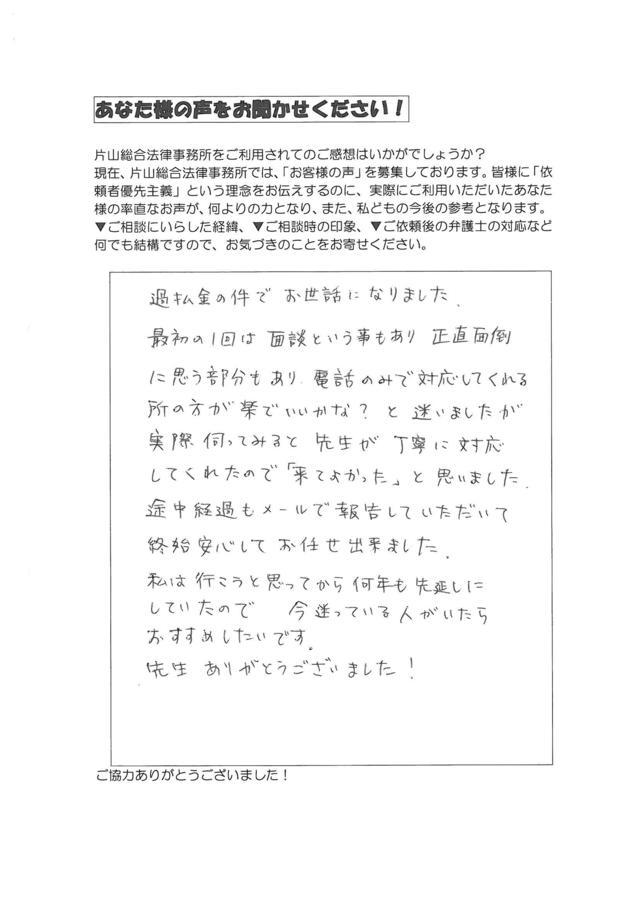 あなた様の声をお聞かせください！
片山総合法律事務所をご利用されてのご感想はいかがでしょうか？
現在、片山総合法律事務所では、「お客様の声」を募集しております。皆様に「依
頼者優先主義」という理念をお伝えするのに、実際にご利用いただいたあなた
様の率直なお声が、何よりの力となり、また、私どもの今後の参考となります。
▼ご相談にいらした経緯、▼ご相談時の印象、▼ご依頼後の弁護士の対応など
何でも結構ですので、お気づきのことをお寄せください。
過払金の件で お世話になりました.
最初の1回は 面談という事もあり 正直面倒
に思う部分もあり、電話のみで対応してくれる
所の方が楽でいいかな？と 迷いましたが
実際 伺ってみると 先生が 丁寧に対応
してくれたので「来てよかった」と 思いました.
途中経過もメールで報告していただいて
終始安心して お任せ出来ました.
私は行こうと思ってから何年も先延しに
していたので 今迷っている人がいたら
おすすめしたいです。
先生 ありがとうございました！
ご協力ありがとうございました！